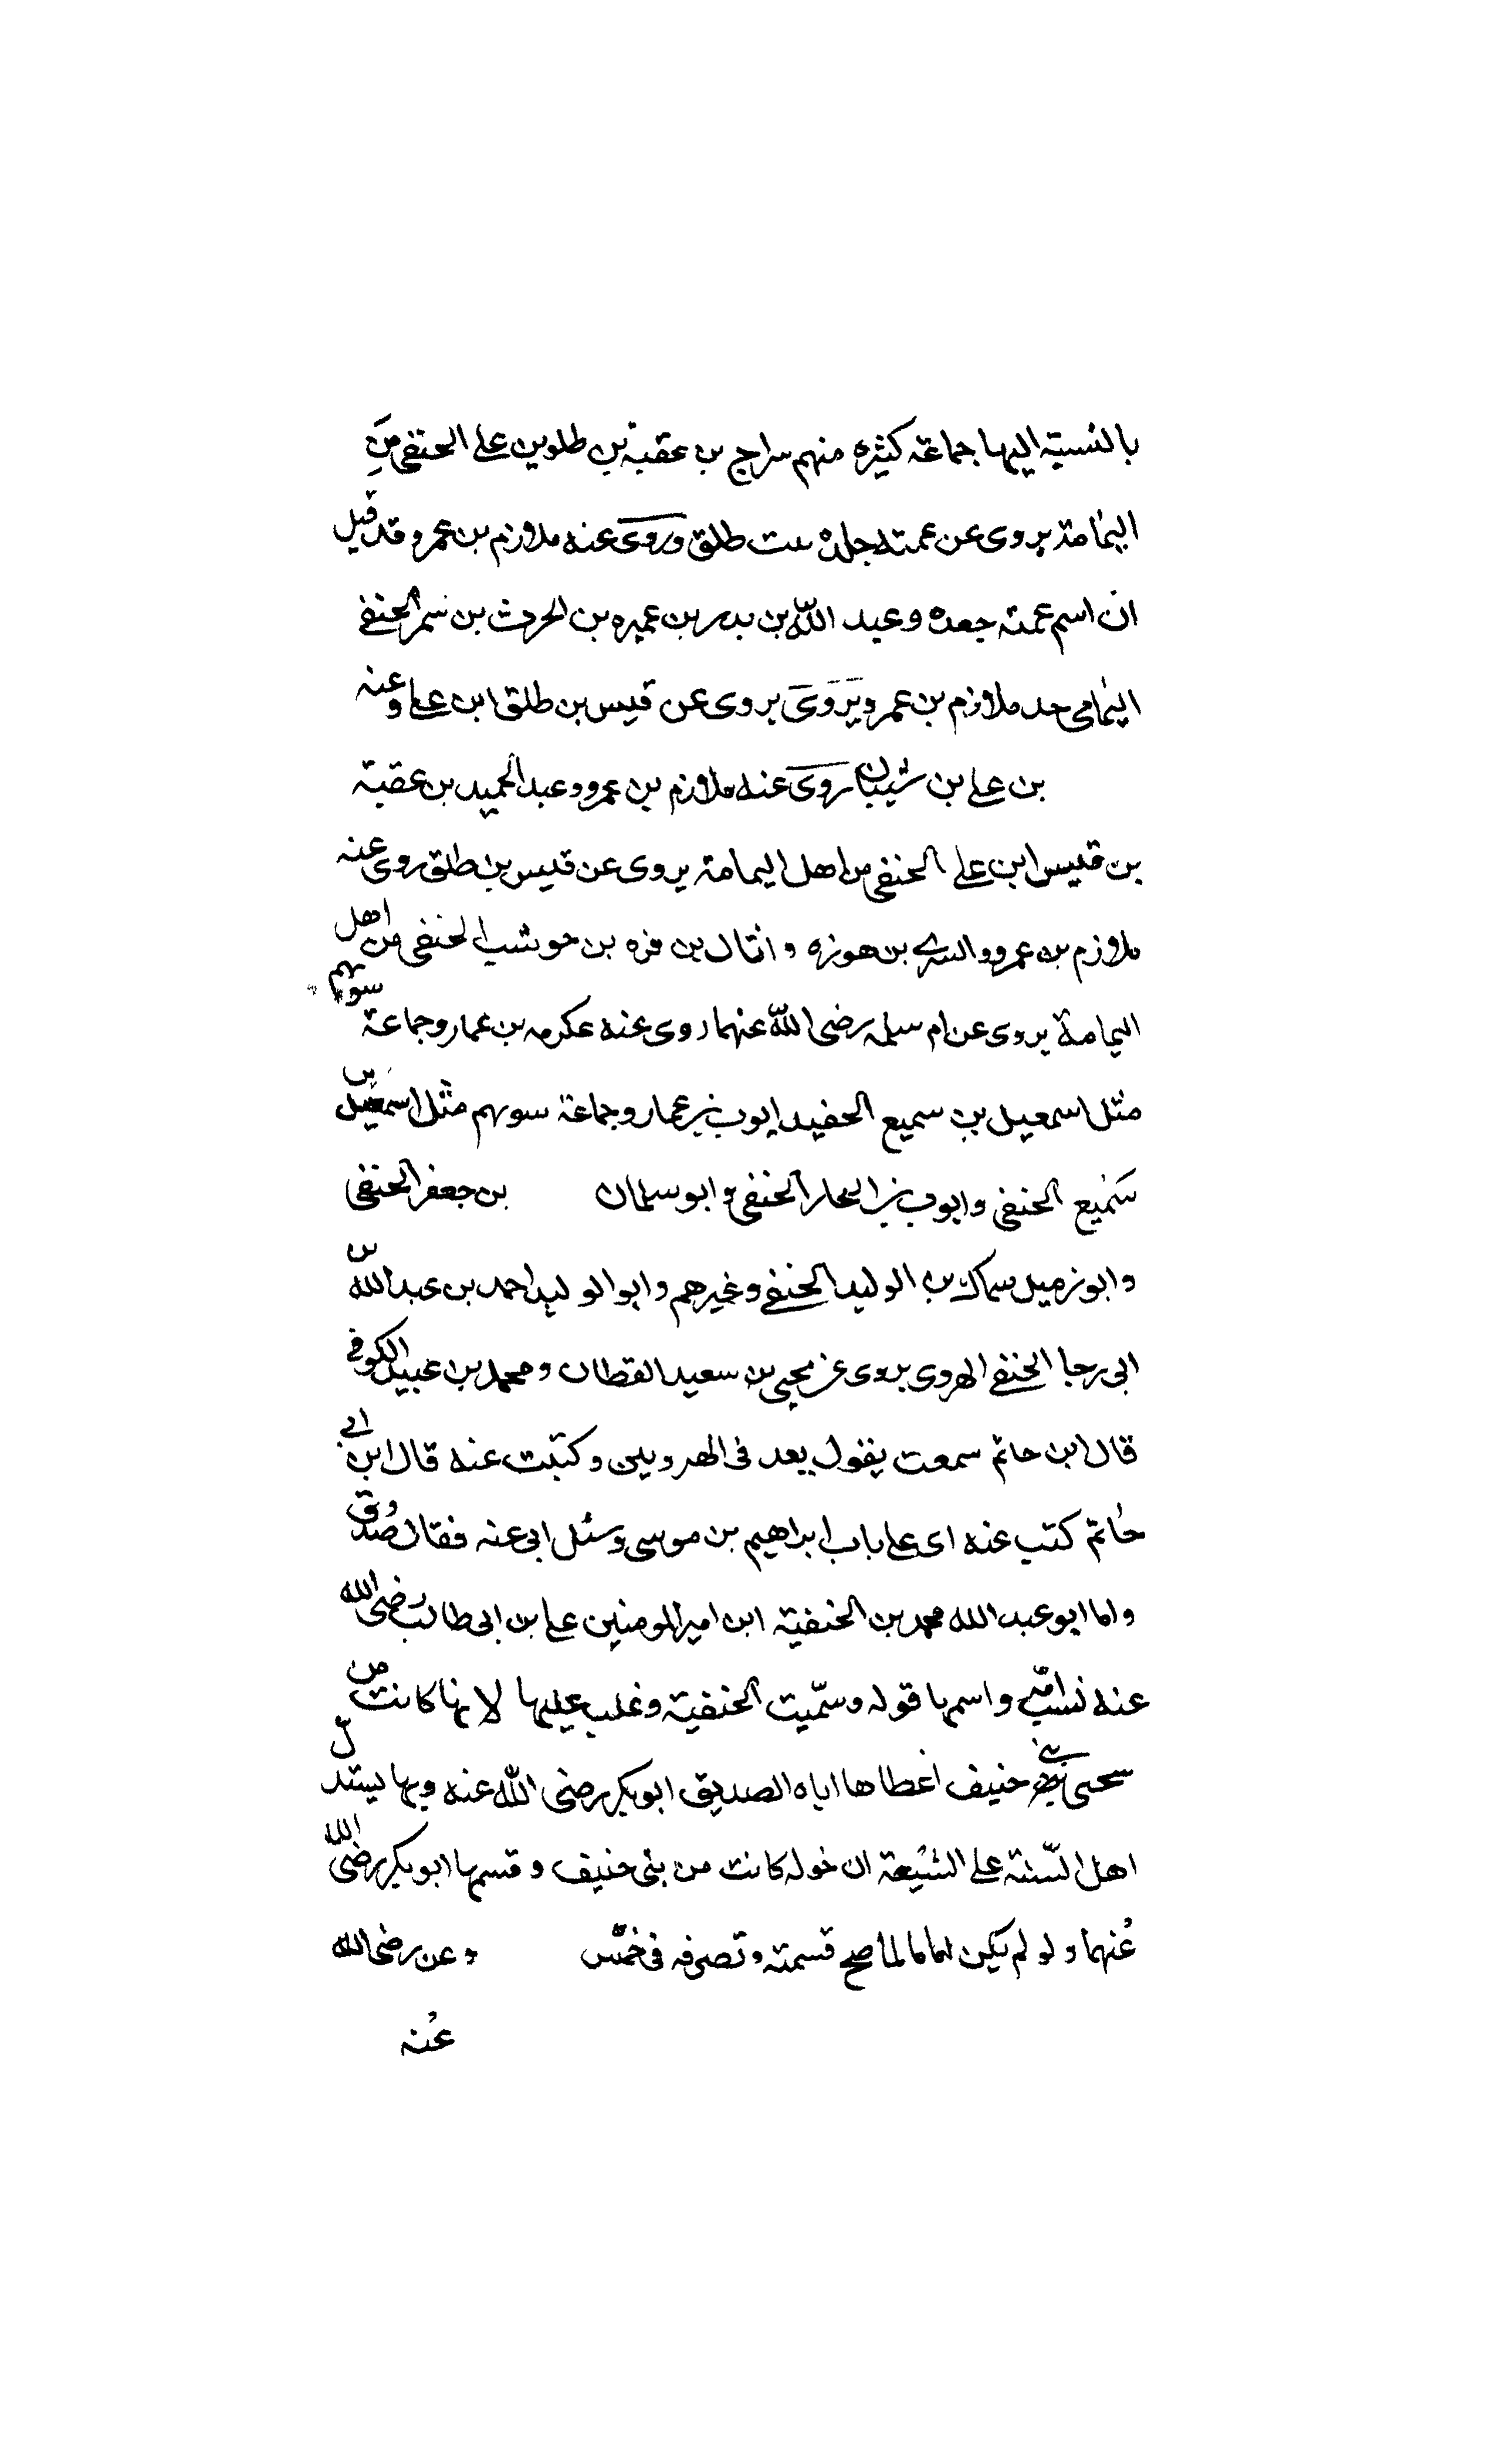 بالنسبة اليها جماعة كثيره منهم سراج بن عقبة بن طلوبن على الحنفى من
اليمامة يروى عن عمته جلده بنت طلق وروى عنه ملازم بن عمرو قد قيل
ان اسم عمته جعده وعبد الله بن بدر بن عميره بن الحرث بن سمر الحنفى
اليمامى جد ملازم بن عمرو يروى يروى عن قيس بن طلق ابن على وعنه
بن على بن شيبان روى عنه ملازم بن عمرو وعبد الحميد بن عقبة
بن قيس ابن على الحنفى من اهل اليمامة يروى عن قيس بن طلق روى عنه
ملازم بن عمرو والسرى بن هوزه واثال بن قره بن حوشب الحنفى من اهل
اليمامة يروى عن ام سلمه رضى الله عنها روى عنه عكرمه بن عمار وجماعة سوهم
مثل اسمعيل بن سميع الحفيد ايوب بن عمار وجماعة سوهم مثل اسمعيل بن
سميع الحنفى وايوب بن النجار الحنفى وابو سلمان بن جعفر الحنفى
وابو زميل سماك بن الوليد الحنفى وغيرهم وابو الوليد احمد بن عبد الله بن
ابى رجا الحنفى الهروى يروى عن يحيى بن سعيد القطان ومحمد بن عبيد الكوفى
قال ابن حاتم سمعت يقول يعد فى الهرويين وكتبت عنه قال ابن ابى
حاتم كتب عنه ابى على باب ابراهيم بن موسى وسئل ابى عنه فقال صدوق
واما ابو عبد الله محمد بن الحنفية ابن امير المومنين على بن ابى طالب رضى الله
عنه نسب امه واسمها قوله وسميت الحنفية وغلب عليها لانها كانت من
سحى بنى حنيف اعطاها اياه الصديق ابو بكر رضى الله عنه وبها يستدل
اهل السنة على الشيعة ان خوله كانت من بنى حنيف وقسمها ابو بكر رضى الله
عنهما ولو لم يكن اماما لما صح قسمته وتصرفه فى خمس وعن رضى الله
عنه